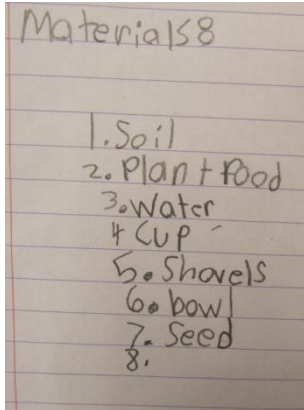 Materials8
1. Soil
2. Plant food
3. Water
4 Cup
5. Shovels
6. bowl
7. Seed
8.